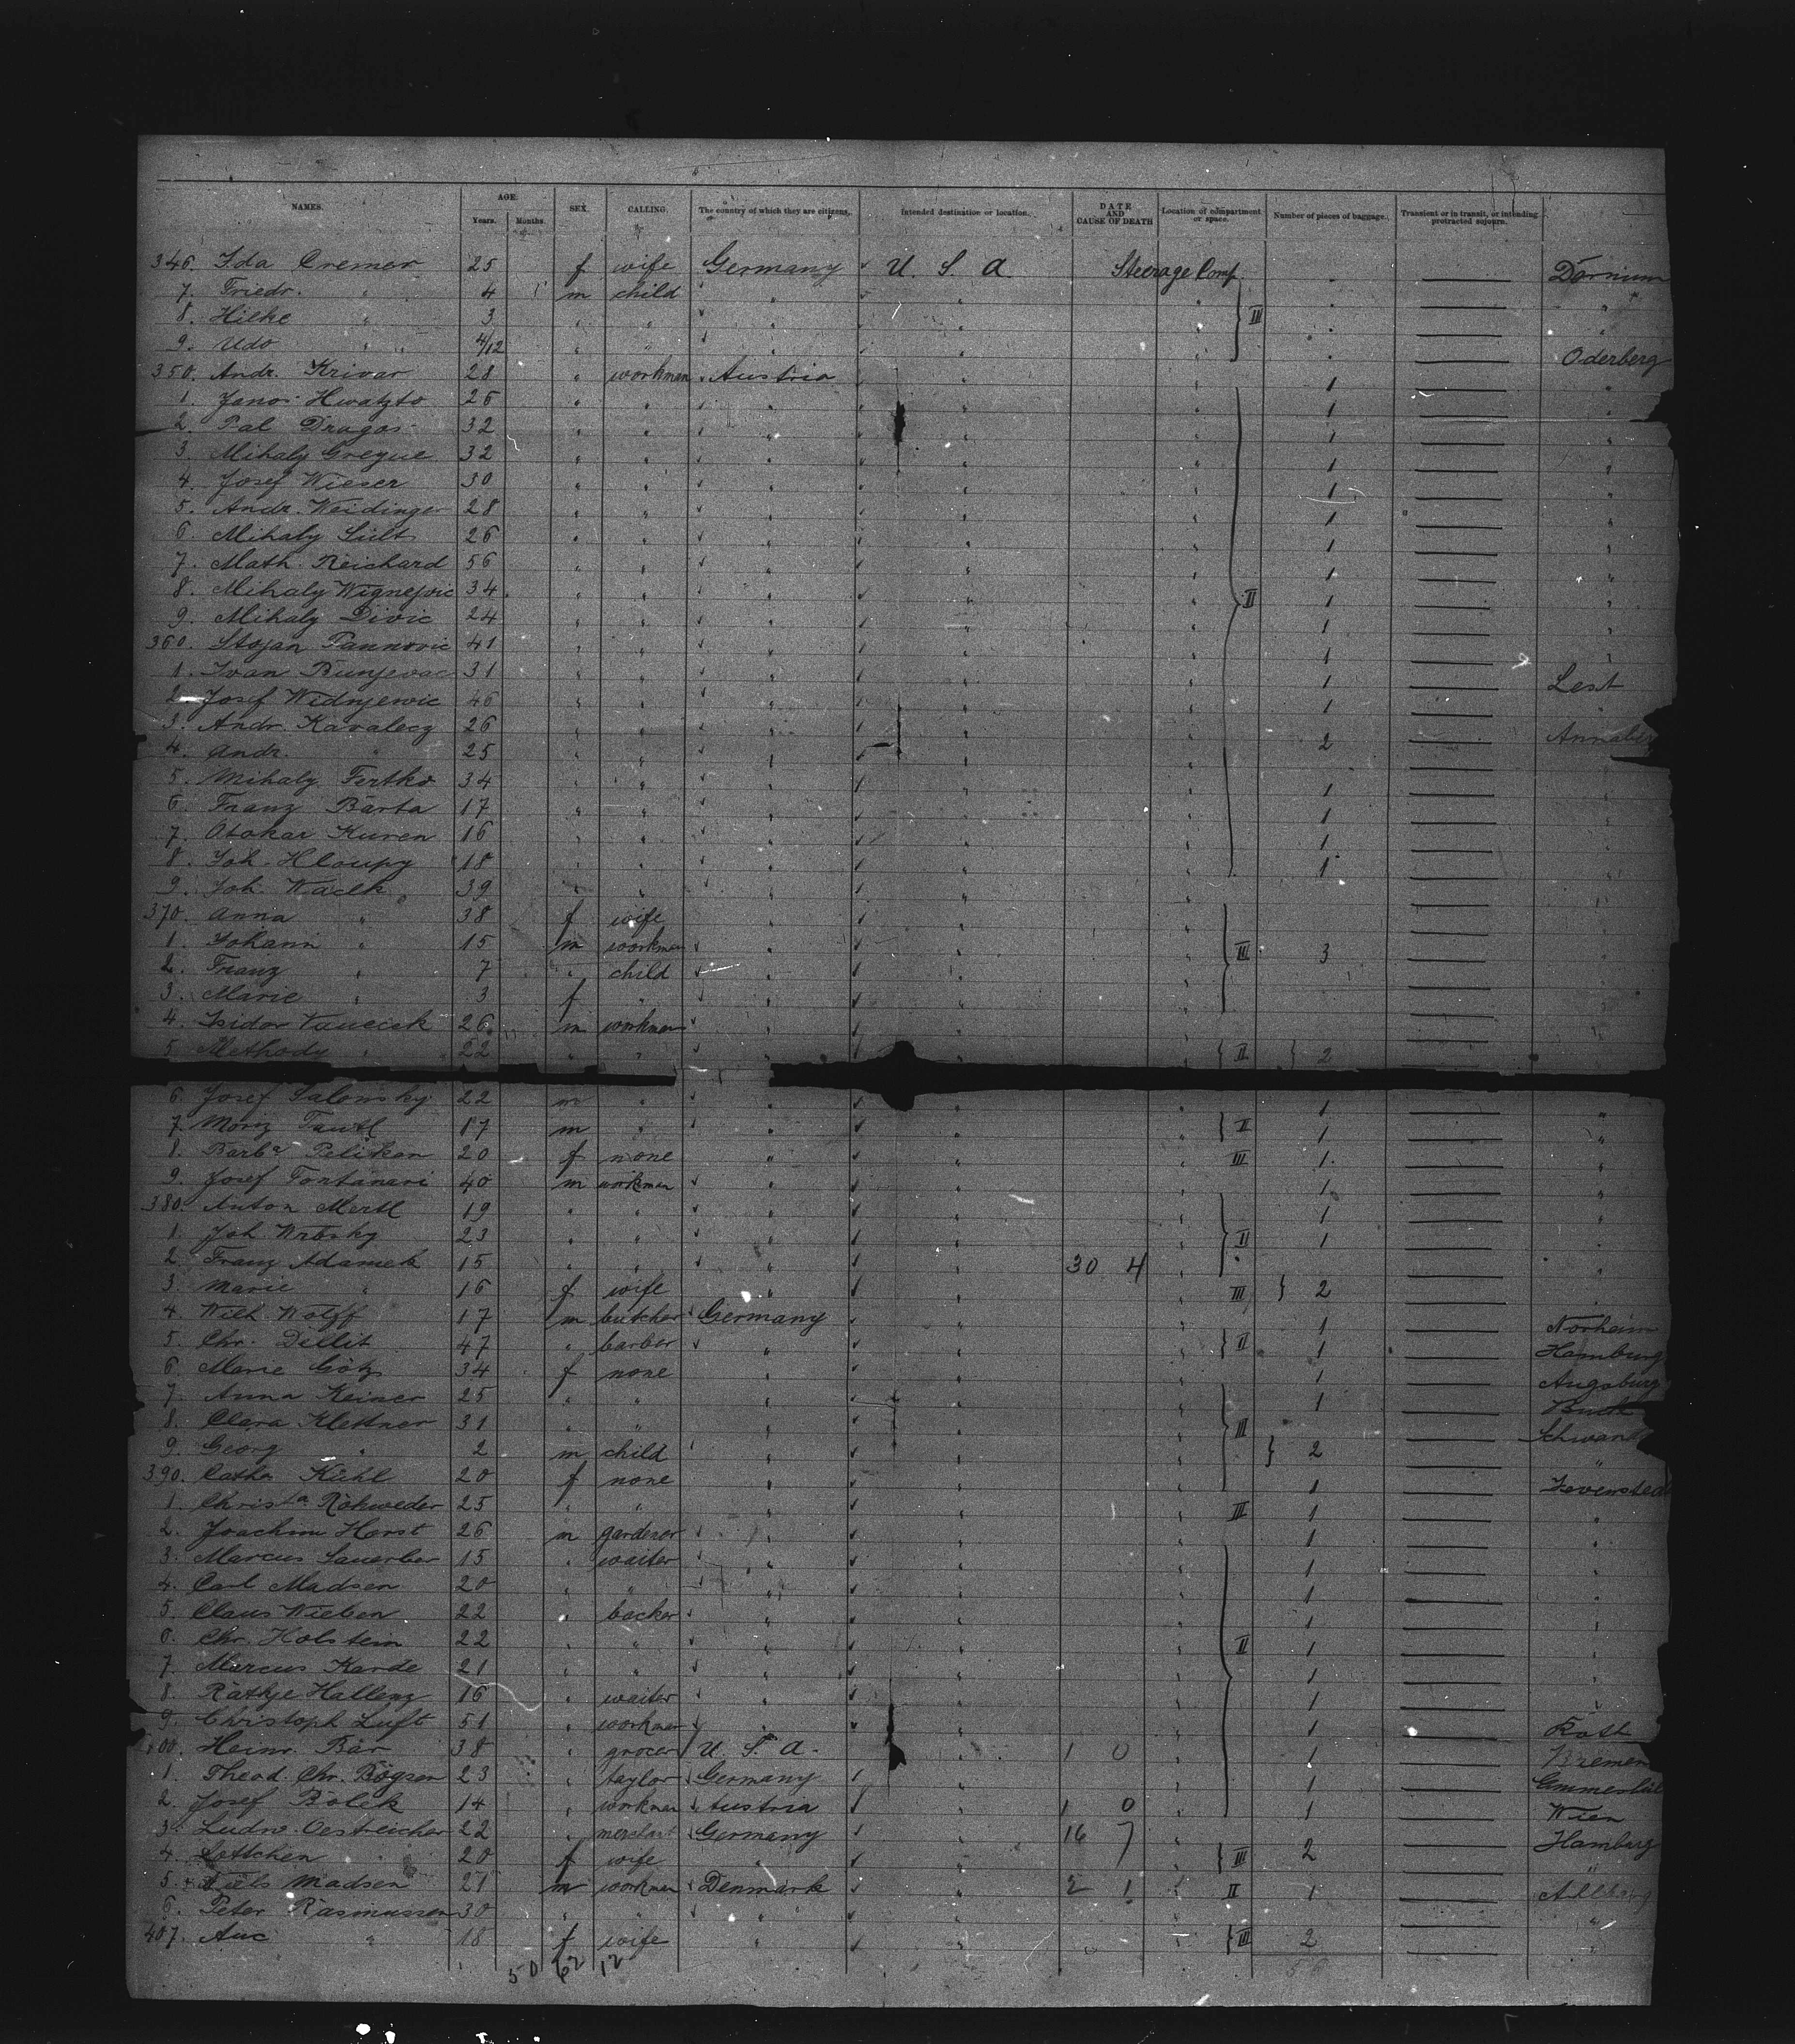 NAMES. AGE. Years. Months. SEX. CALLING. The country of which they are citizens. Intended destination or location. DATE AND CAUSE OF DEATH Location of compartment or space. Number of pieces of baggage. Transient or in transit, or intending protracted sojourn.
346. Ida Cremer 25 f wife Germany U. S. A. Steerage Comp Dornum
7. Friedr. " 4 m child " "
8. Hilke " 3 " " " " III
9. Udo " 4/12 " " " "
350. Andr. Krivar 28 " workman Austria " 1 Oderberg
1. Janos Hwatzto 26 " " " " 1 "
2. Pal Dragos 32 " " " " 1 "
3. Mihaly Gregue 32 " " " " 1 "
4. Josef Wieser 30 " " " " 1 "
5. Andr. Weidinger 28 " " " " 1 "
6. Mihaly 26 " " " " 1 "
7. Math. Reichard 56 " " " " 1 "
8. Mihaly Wignejvic 34 " " " " II 1 "
9. Mihaly Divic 24 " " " " 1 "
360. Stojan Pannovic 41 " " " " 1 "
1. Ivan Bunjevac 31 " " " " 1 Lest
2. Josef Widnjewic 46 " " " " 1 "
3. Andr. Kavalecz 26 " " " " 2
4. Andr. " 25 " " " "
5. Mihaly Fertko 34 " " " " 1 "
6. Franz Barta 17 " " " " 1 "
7. Otokar Kuren 16 " " " " 1 "
8. Joh. Hloupy 18 " " " " 1 "
9. Joh. Waclk 39 " " " "
370. Anna " 38 f wife " "
1. Johann " 15 m workman " " III 3
2. Franz " 7 " child " "
3. Marie " 3 f " " "
4. Isidor Vaucisk 26 m workman " "
5. Methody " 22 " " " " II 2
6. Josef Salonsky 22 m " " " 1 "
7. Moriz 17 m " " " II 1 "
8. Barba Pelikan 20 f none " " III 1 "
9. Josef Fontanari 40 m workman " " 1 "
380. Anton Mertl 19 " " " " 1 "
1. Joh Wrbsky 23 " " " " II 1 "
2. Franz Adamek 15 " " " " 30 4 "
3. Marie " 16 f wife " " III 2
4. Wilh Wolff 17 m butcher Germany " 1 Norheim
5. Chr. Dellit 47 " barber " " II 1 Hamburg
6. Marie Götz 34 f none " " 1 Augsburg
7. Anna Keiner 25 " " " " 1
8. Clara Klettner 31 " " " " III
9. Georg " 2 m child " " 2 "
390. Catha Kühl 20 f none " " 1
1. Christa Rohweder 25 " " " " III 1 "
2. Joachim Horst 26 m gardener " " 1 "
3. Marcus Sauerber 15 " waiter " " 1 "
4. Carl Madsen 20 " " " " 1 "
5. Claus Wieben 22 " backer " " 1 "
6. Chr. Holstein 22 " " " " II 1 "
7. Marcus Karde 21 " " " " 1 "
8. Rathje Hallenz 16 " waiter " " 1 "
9. Christoph Luft 51 " workman " " 1 Rott
400. Heinr. Bär 38 " grocer U. S. A. " 1 0 1 Bremen
1. Theod. Chr. Bögsen 23 " taylor Germany " 1
2. Josef Bolek 14 " workman Austria " 1 0 1 Wien
3. Ludw. Oestreicher 22 " merchant Germany " 16 7 Hamburg
4. Lottchen " 20 f wife " " III 2 "
5. Niels Madsen 21 m workman Denmark " 2 1 II 1
6. Peter Rasmussen 30 " " " " "
407. Ane " 18 f wife " " III 2 "
50 62 12